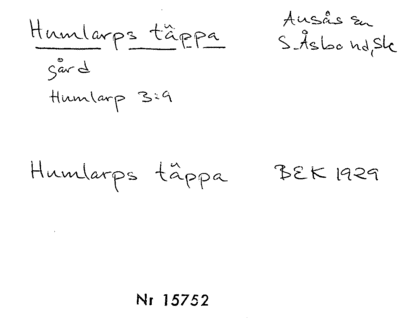 Humlarps täppa
Ausås sn
S. Åsbo hd, Sk
gård
Humlarp 3:9
Humlarps täppa
BEK 1929
Nr 15752